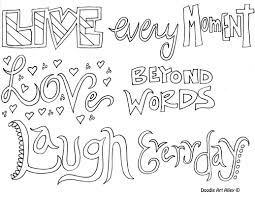 LIVE every MOMENT
LOVE BEYOND WORDS
Laugh Everyday
Doodle Art Alley ©